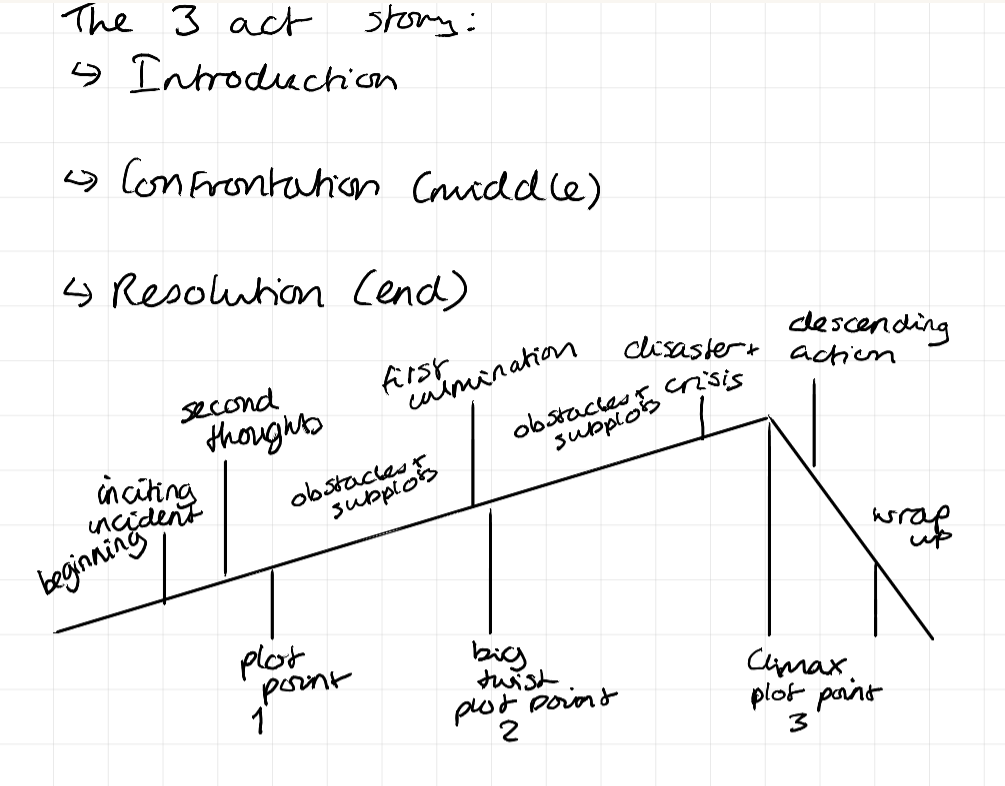 The 3 act story:
↪ Introduction
↪ Confrontation (middle)
↪ Resolution (end)
descending
action
disaster +
crisis
first
culmination
obstacles +
subplots
second
thoughts
obstacles +
subplots
inciting
incident
beginning
wrap
up
plot
point
1
big
twist
plot point
2
Climax
plot point
3